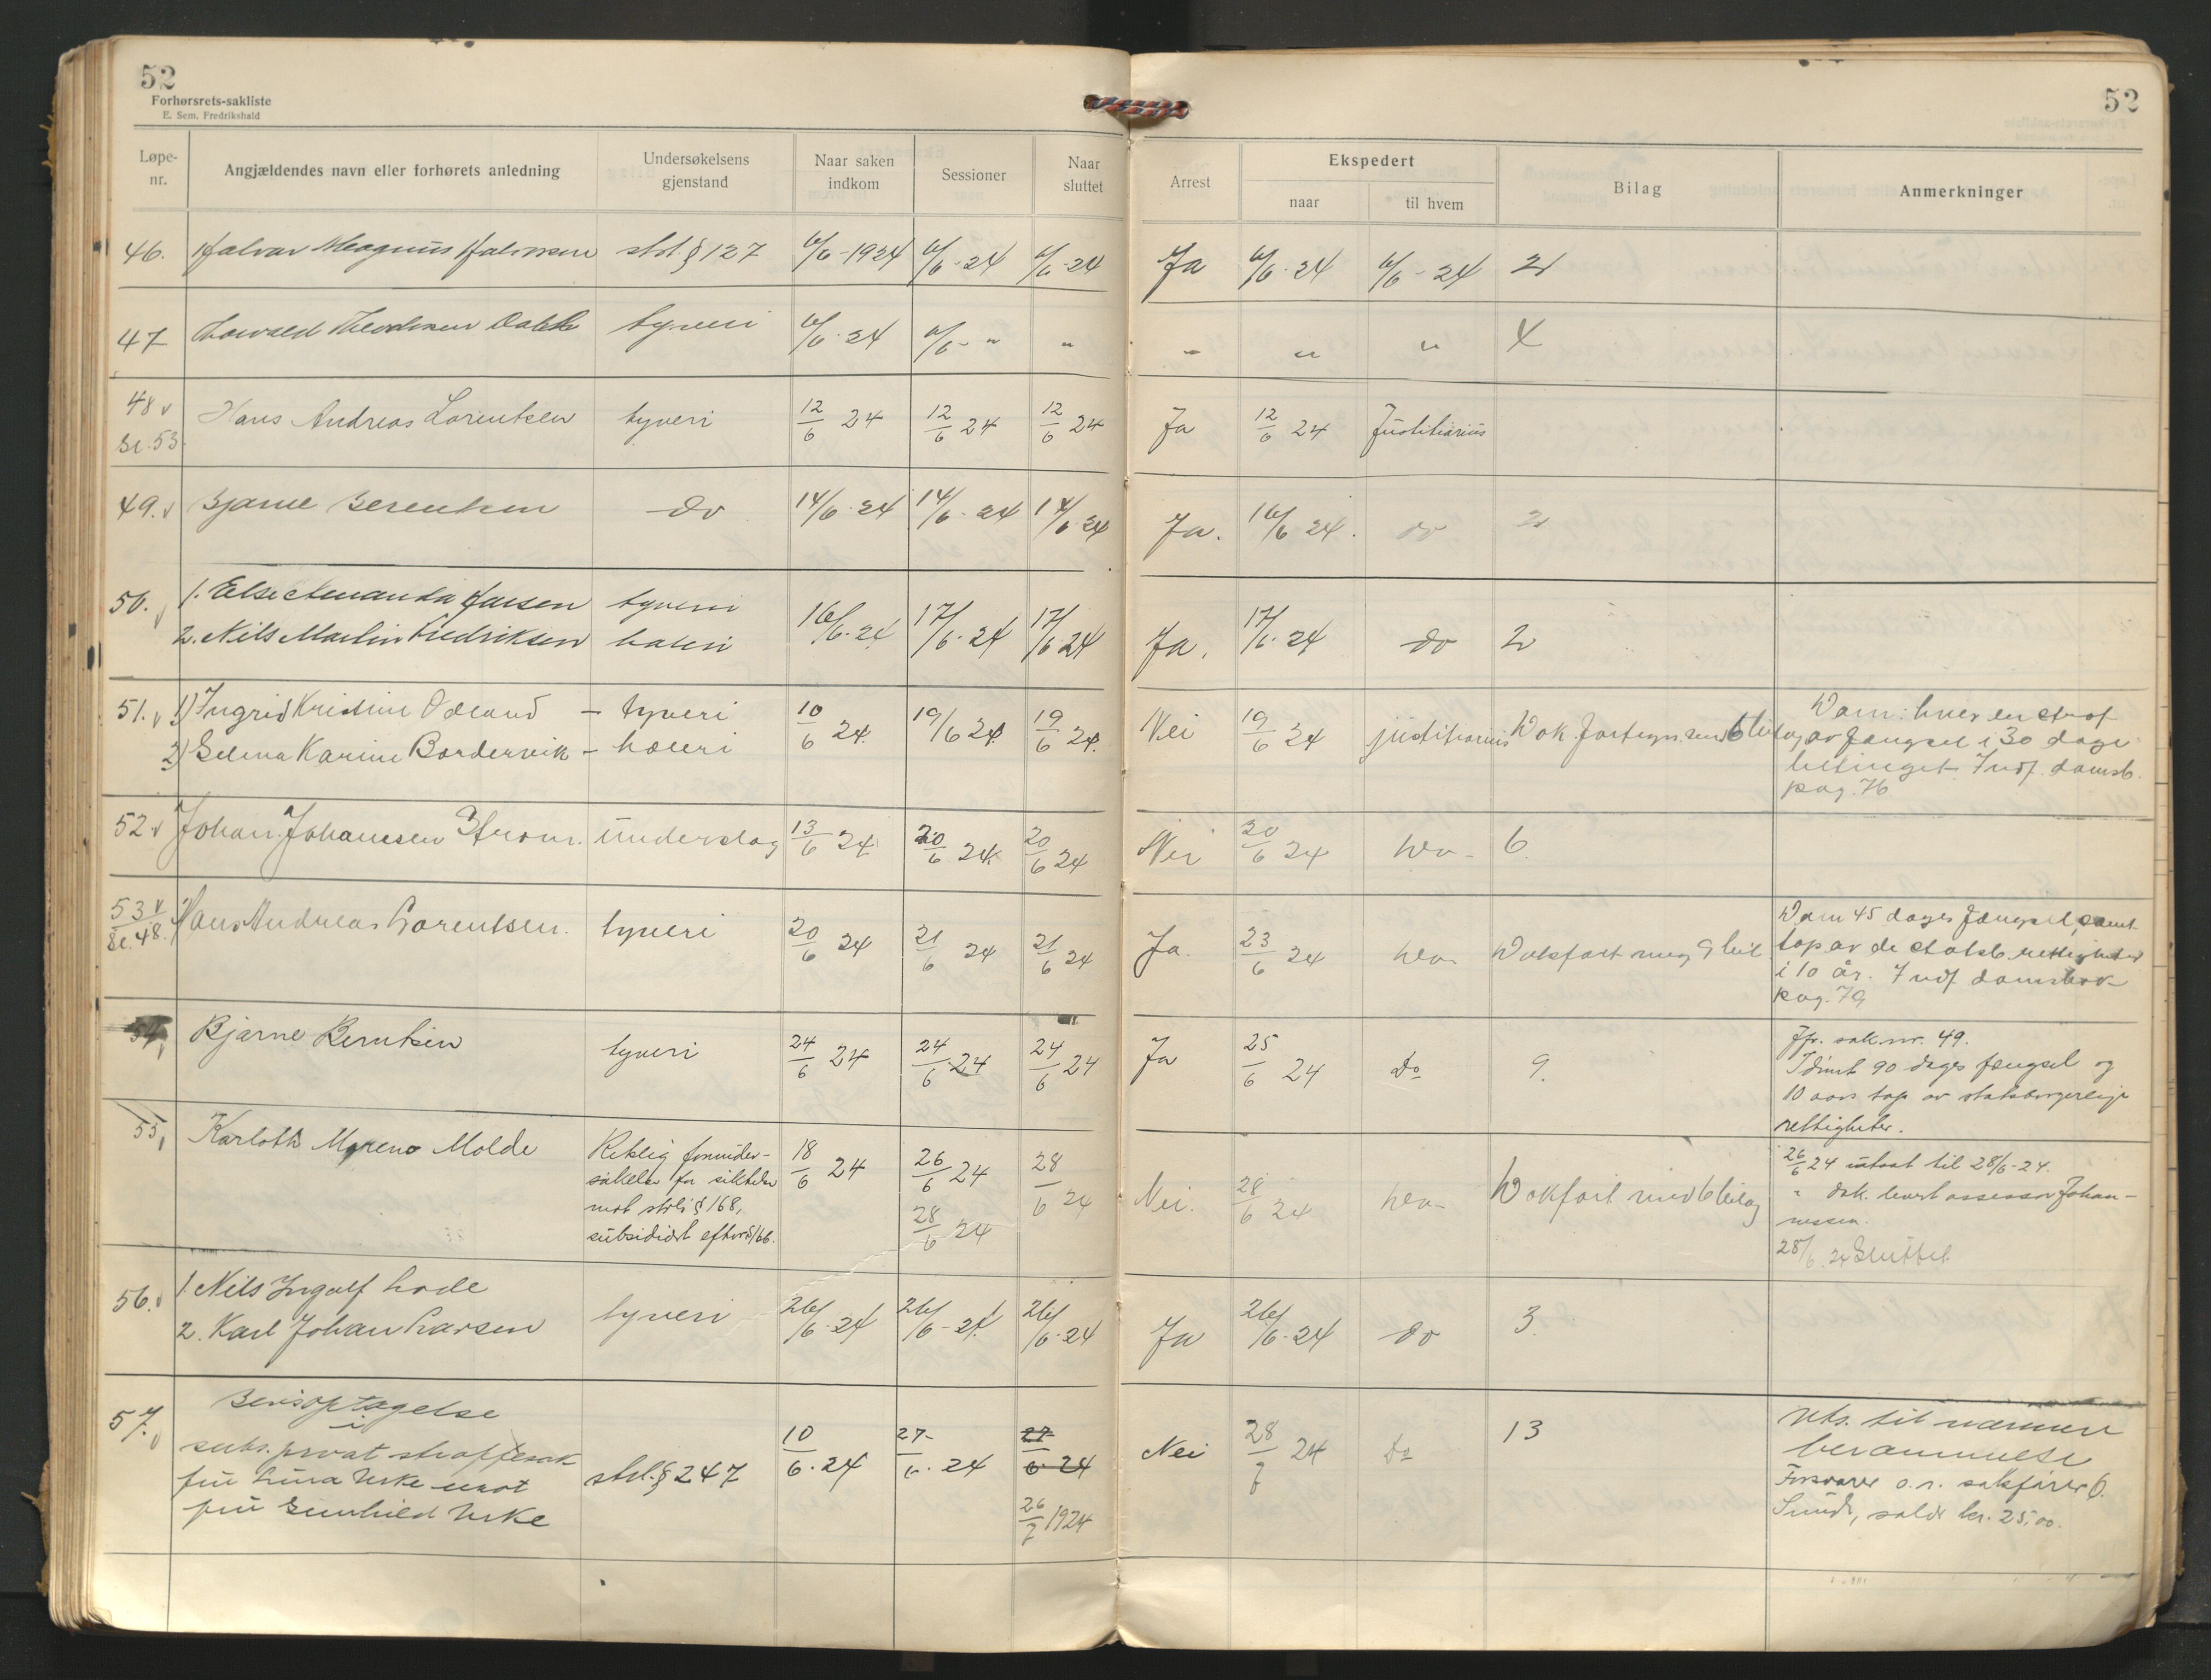 52
Forhørsrets-sakliste
E. Sem, Fredrikshald
52
Løpe-nr. Angjældendes navn eller forhørets anledning Undersøkelsens gjenstand Naar saken indkom Sessioner Naar sluttet Arrest Ekspedert naar til hvem Bilag Anmerkninger
46. Halvar Magnus Halvorsen strl § 127 6/6-1924 6/6-24 6/6-24 Ja 6/6-24 6/6-24 2
47 Theodorsen tyveri 6/6-24 6/6- " " " " " 4
48 v Hans Andreas Lorentsen tyveri 12/6 24 12/6 24 12/6 24 Ja 12/6 24 Justitiarius
Se. 53
49. v Bjarne Berentsen do 14/6-24 14/6-24 14/6-24 Ja. 16/6 24. do 2
50. v 1. Else Amanda Jansen tyveri
2. Nils Martin Fredriksen hæleri 16/6-24 17/6-24 17/6-24 Ja. 17/6-24 do 2
51. v 1) Ingrid Kristine Ödland - tyveri 10/6 24. 19/6 24. 19/6 24. Nei 19/6 24 justitiarius Dok. fortegn. med 6 bilag
2) Selma Karine Bordervik - hæleri
Dom: hver en straf
av fængsel i 30 dage
betinget. Indf. domsb.
pag. 76
52 v Johan Johannesen Strøm. underslag 13/6 24 20/6 24. 20/6 24 Nei 20/6 24 do- 6.
53 v Hans Andreas Lorentsen. tyveri 20/6 24 21/6 24 21/6 24 Ja. 23/6 24 do- Dokfort meg 9 bil
Se. 48.
Dom 45 dages fængsel, samt
tap av de statsb. rettigheter
i 10 år. Indf. domsbok
pag. 79
54, Bjarne Berntsen tyveri 24/6 24 24/6 24 24/6 24 Ja 25/6 24 Do 9.
Jfr. sak nr. 49.
Idømt 90 dages fængsel og
10 aars tap av statsborgerlige
rettigheter.
55, Karloth Moreno Molde 18/6 24 26/6 24 28/6 24 Nei. 28/6 24 do- Dokfort med 6 bilag
Retslig forunder-
søkelse for siktelse
mot strl's § 168,
subsidiært efter § 166.
28/6 24
26/6 24 utsat til 28/6-24.
" dok. levert assessor Johan-
nessen.
28/6. 24 Sluttet
56. v 1. Nils Ingolf Lode
2. Karl Johan Larsen tyveri 26/6-24 26/6-24. 26/6-24 Ja 26/6-24 do 3.
57. v Bevisoptagelse
i
subs. privat straffesak
fru Lina Urke mot
fru Gunhild Urke
strl. § 247 10/6.24 27/6.24 27/6 24 Nei 28/7 24 Do 13
26/7 1924
Uts. til nærmere
berammelse
Forsvarer o.r. sakfører O.
Sunde, salær kr. 25,00.